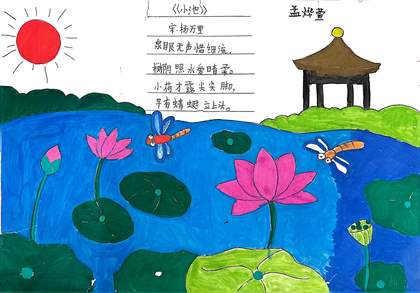 《小池》
孟烨萱
宋·杨万里
泉眼无声惜细流,
树阴照水爱晴柔。
小荷才露尖尖脚,
早有蜻蜓立上头。